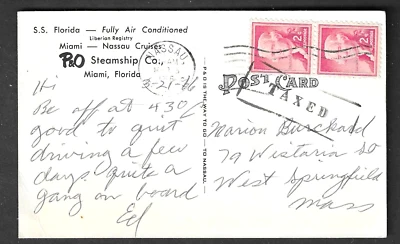 S.S. Florida — Fully Air Conditioned
Liberian Registry
Miami — Nassau Cruises
P&O Steamship Co.,
Miami, Florida
NASSAU
2¢
2¢
POST CARD
TAXED
P&O IS THE WAY TO GO - TO NASSAU
Hi
Be off at 430
good to quit
driving a few
days quite a
gang on board
Ed
Marion Burckard
79 Wistaria
West Springfield
Mass